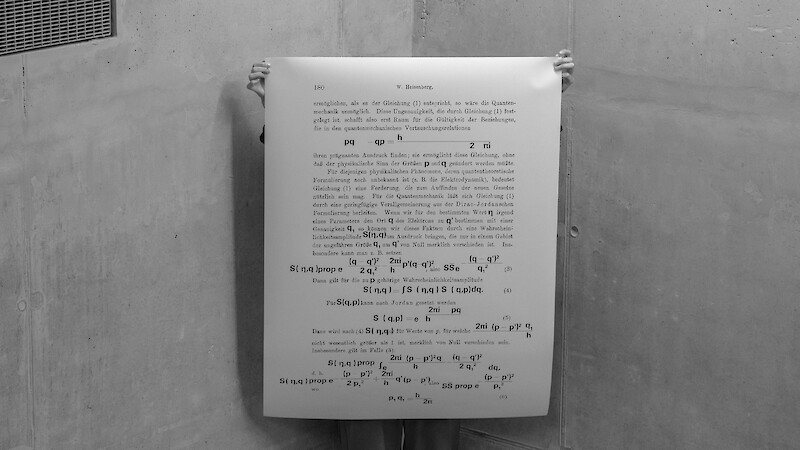 180 W. Heisenberg.
ermöglichen, als es der Gleichung (1) entspricht, so wäre die Quanten-
mechanik unmöglich. Diese Ungenauigkeit, die durch Gleichung (1) fest-
gelegt ist, schafft also erst Raum für die Gültigkeit der Beziehungen,
die in den quantenmechanischen Vertauschungsrelationen
pq - qp = h / 2 πi
ihren prägnanten Ausdruck finden; sie ermöglicht diese Gleichung, ohne
daß der physikalische Sinn der Größen p und q geändert werden müßte.
Für diejenigen physikalischen Phänomene, deren quantentheoretische
Formulierung noch unbekannt ist (z. B. die Elektrodynamik), bedeutet
Gleichung (1) eine Forderung, die zum Auffinden der neuen Gesetze
nützlich sein mag. Für die Quantenmechanik läßt sich Gleichung (1)
durch eine geringfügige Verallgemeinerung aus der Dirac-Jordanschen
Formulierung herleiten. Wenn wir für den bestimmten Wert η irgend
eines Parameters den Ort q des Elektrons zu q' bestimmen mit einer
Genauigkeit q, so können wir dieses Faktum durch eine Wahrschein-
lichkeitsamplitude S(η,q) zum Ausdruck bringen, die nur in einem Gebiet
der ungefähren Größe q, um q' von Null merklich verschieden ist. Ins-
besondere kann man z. B. setzen
S( η,q )prop e (q - q')² / 2 q,² 2πi / h p'(q-q'), also SSe (q - q')² / q,² (3)
Dann gilt für die zu p gehörige Wahrscheinlichkeitsamplitude
S( η,q ) = ∫S ( η,q ) S ( q,p)dq. (4)
Für S(q,p) kann nach Jordan gesetzt werden
S ( q,p) = e 2πi pq / h (5)
Dann wird nach (4) S( η,q,) für Werte von p, für welche 2πi (p - p')² q, / h
nicht wesentlich größer als 1 ist, merklich von Null verschieden sein.
Insbesondere gilt im Falle (3):
S( η,q ) prop ∫e 2πi (p - p')²q / h (q - q')² / 2 q,² dq,
d. h.
S( η,q ) prop e (p - p')² / 2 p,² + 2πi / h q'(p - p') also SS prop e (p - p')² / p,²
p, q, = h / 2π (6)